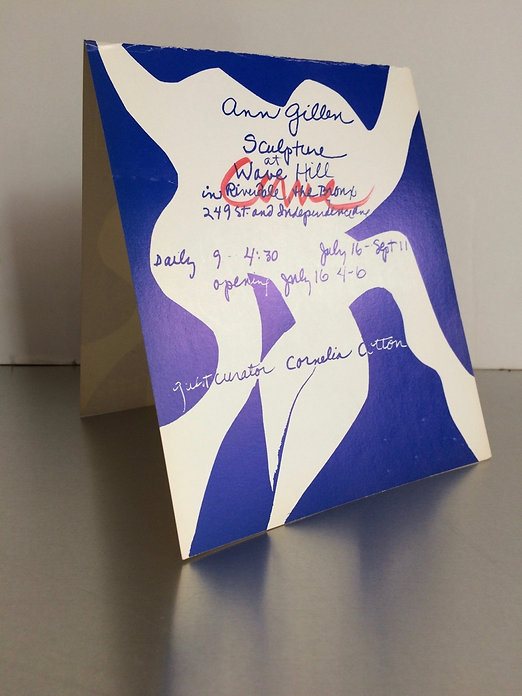 Ann Gillen
Sculpture
at
Wave Hill
Come
in Riverdale the Bronx
249 St. and Independence
Daily 9 - 4:30 July 16 - Sept 11
opening July 16 4-6
guest curator Cornelia Cotton